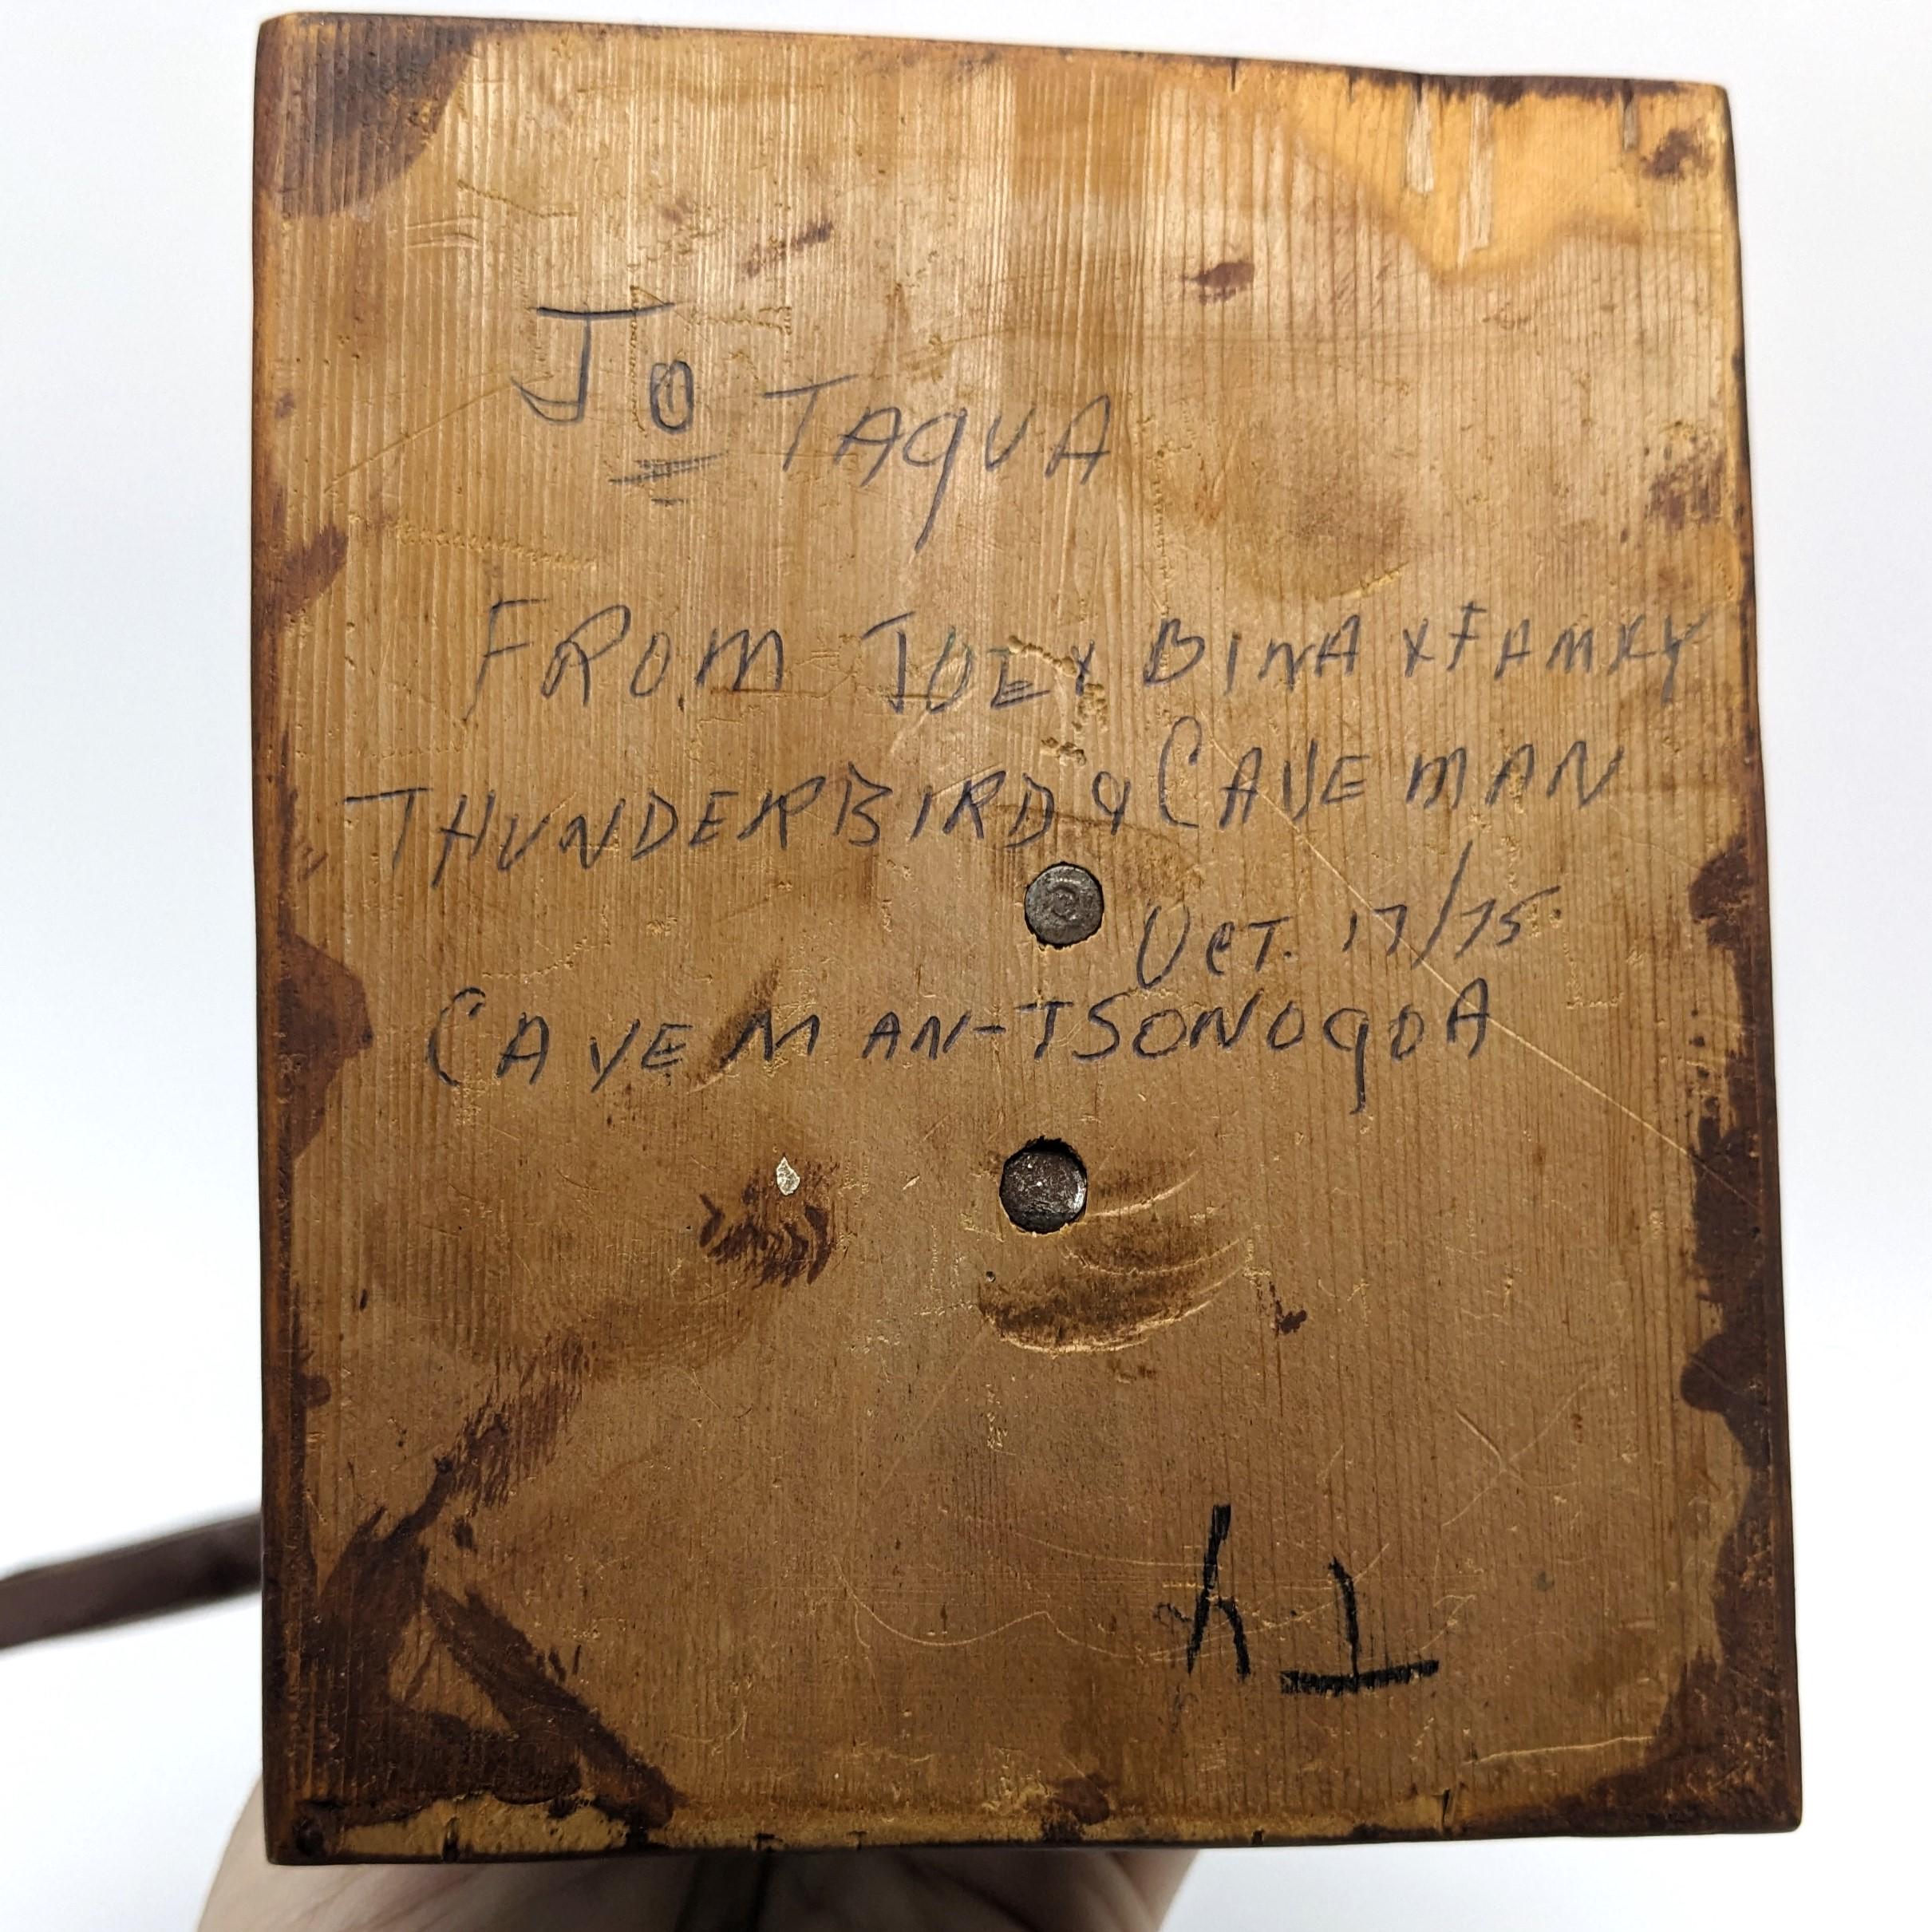 To TAqUA
FROM JOE x BINA x FAMXY
THUNDERBIRD & CAVE MAN
OCT. 17/75
CAVE MAN-TSONOqOA